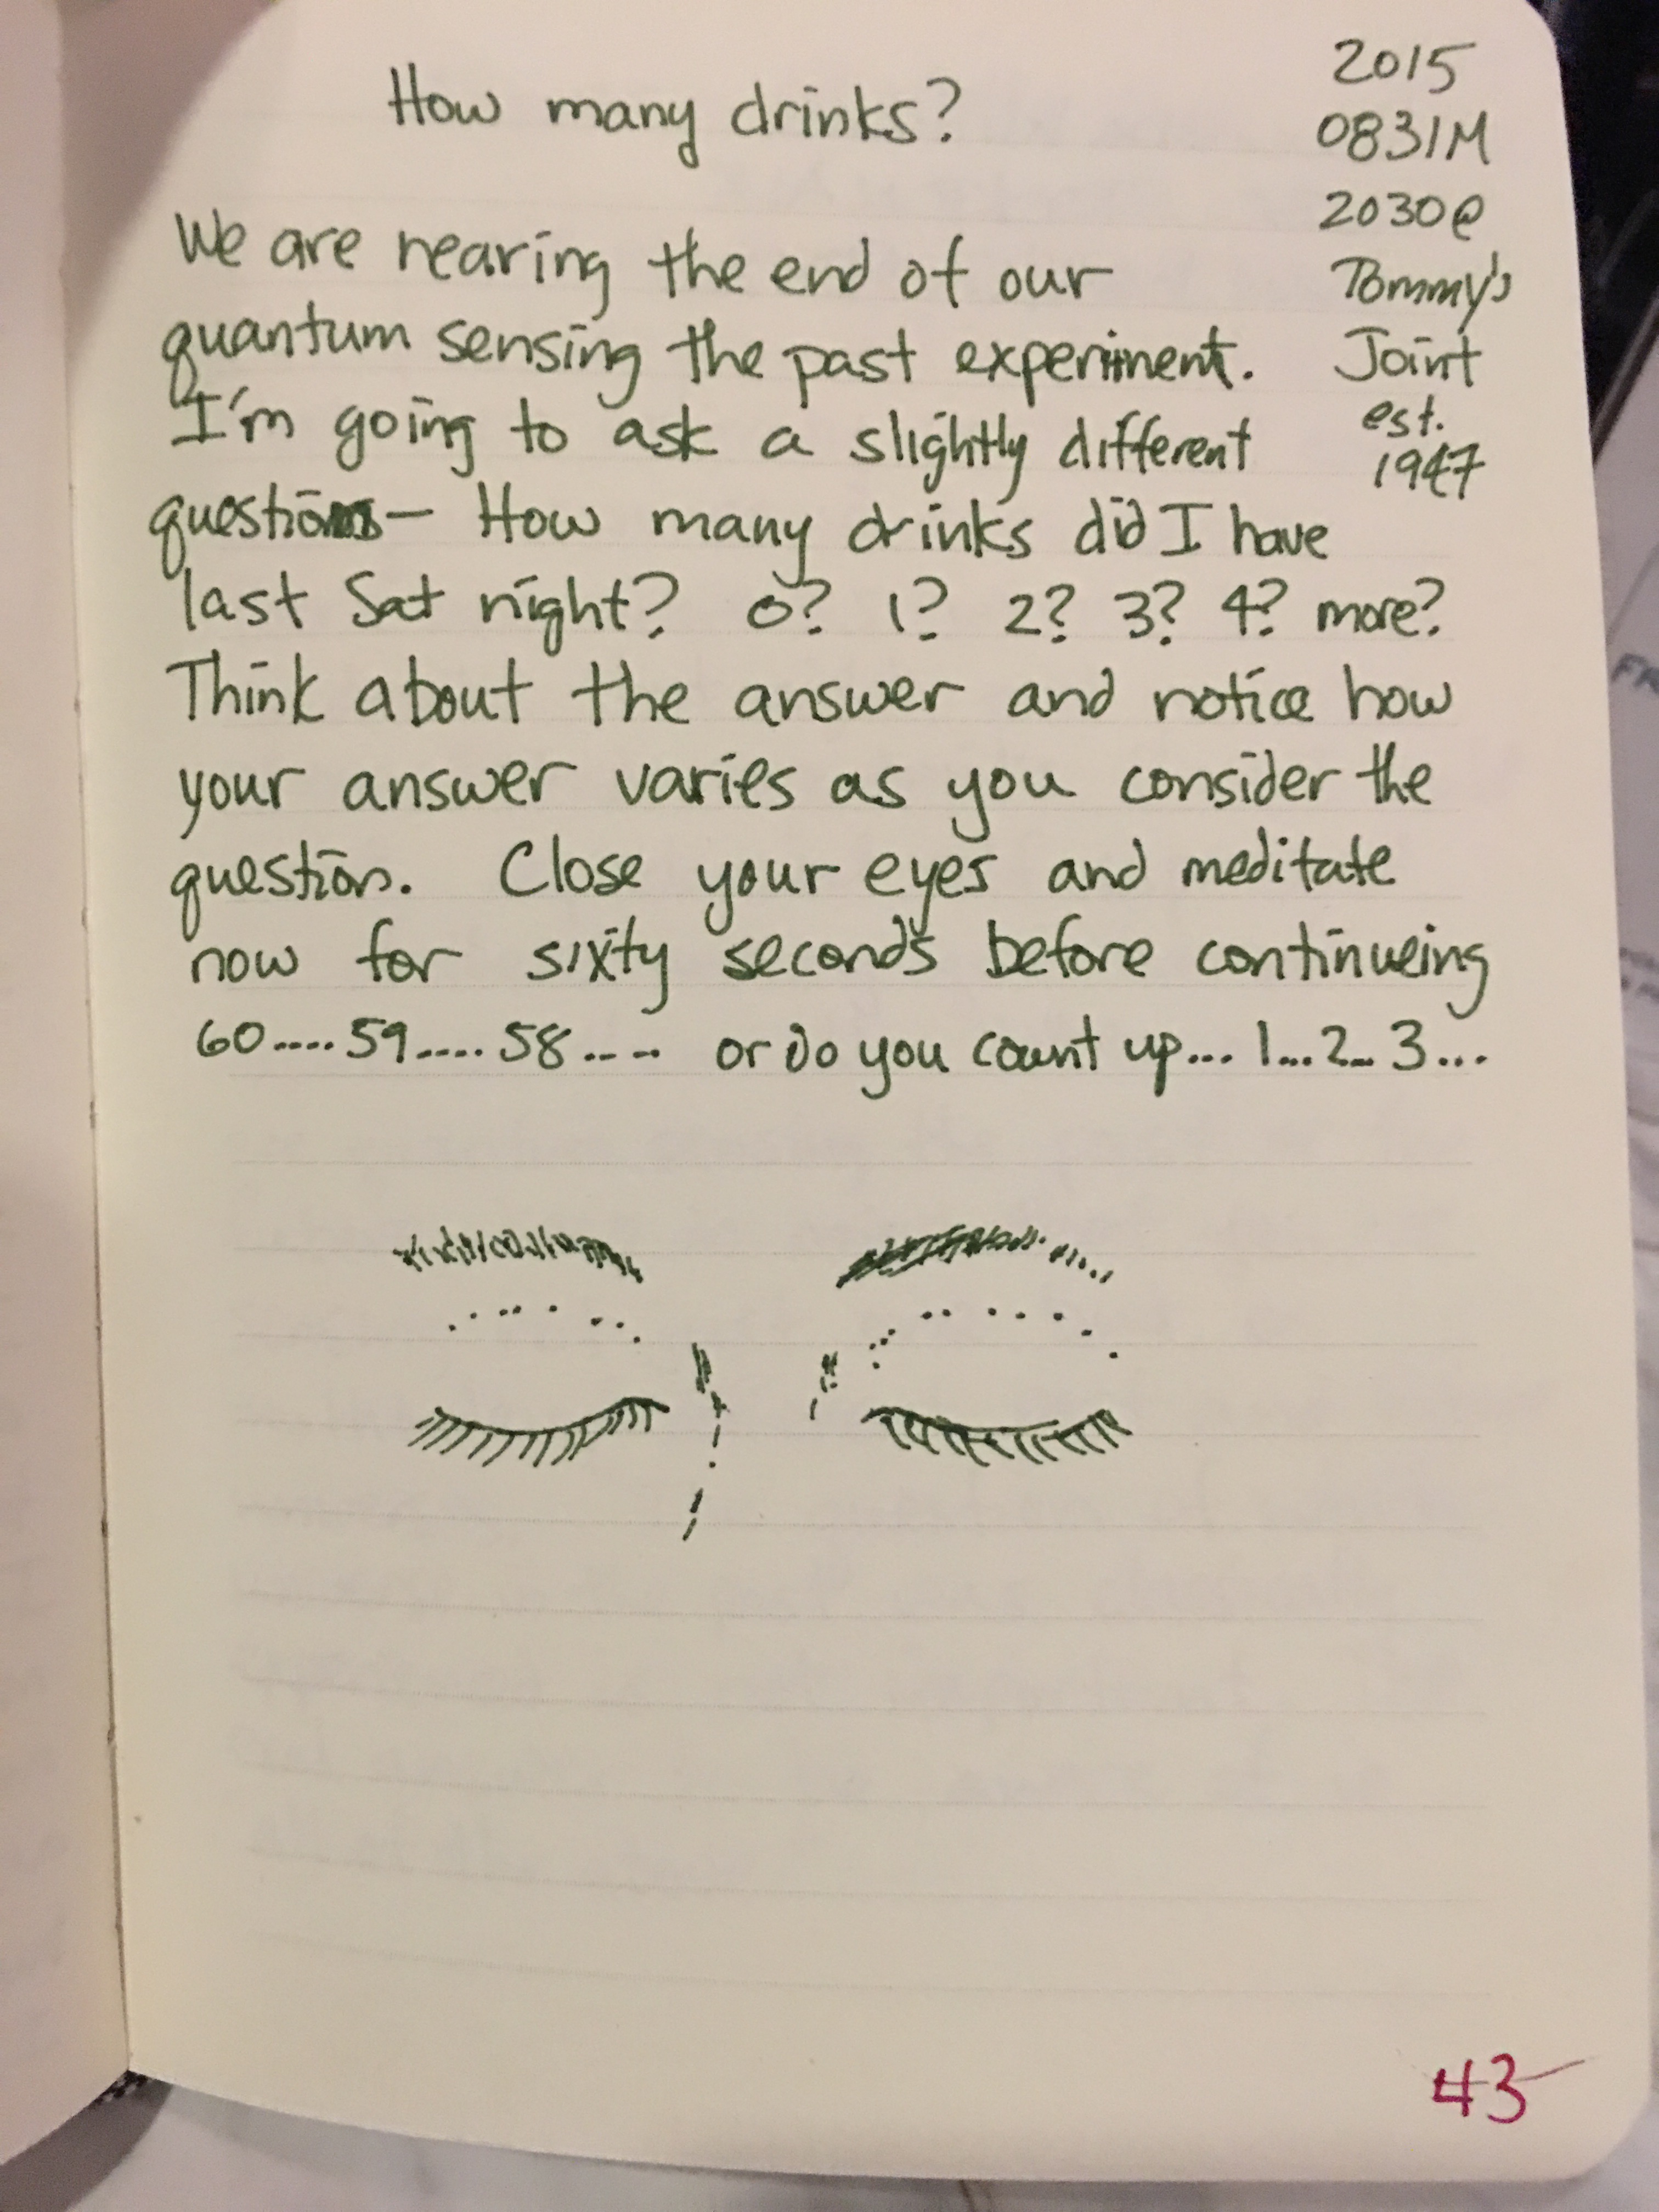 How many drinks?
2015
0831M
2030@
Tommy's
Joint
est.
1947
We are nearing the end of our
quantum sensing the past experiment.
I'm going to ask a slightly different
questions— How many drinks did I have
last Sat night? 0? 1? 2? 3? 4? more?
Think about the answer and notice how
your answer varies as you consider the
question. Close your eyes and meditate
now for sixty seconds before continueing
60....59....58.... or do you count up... 1...2...3...
43